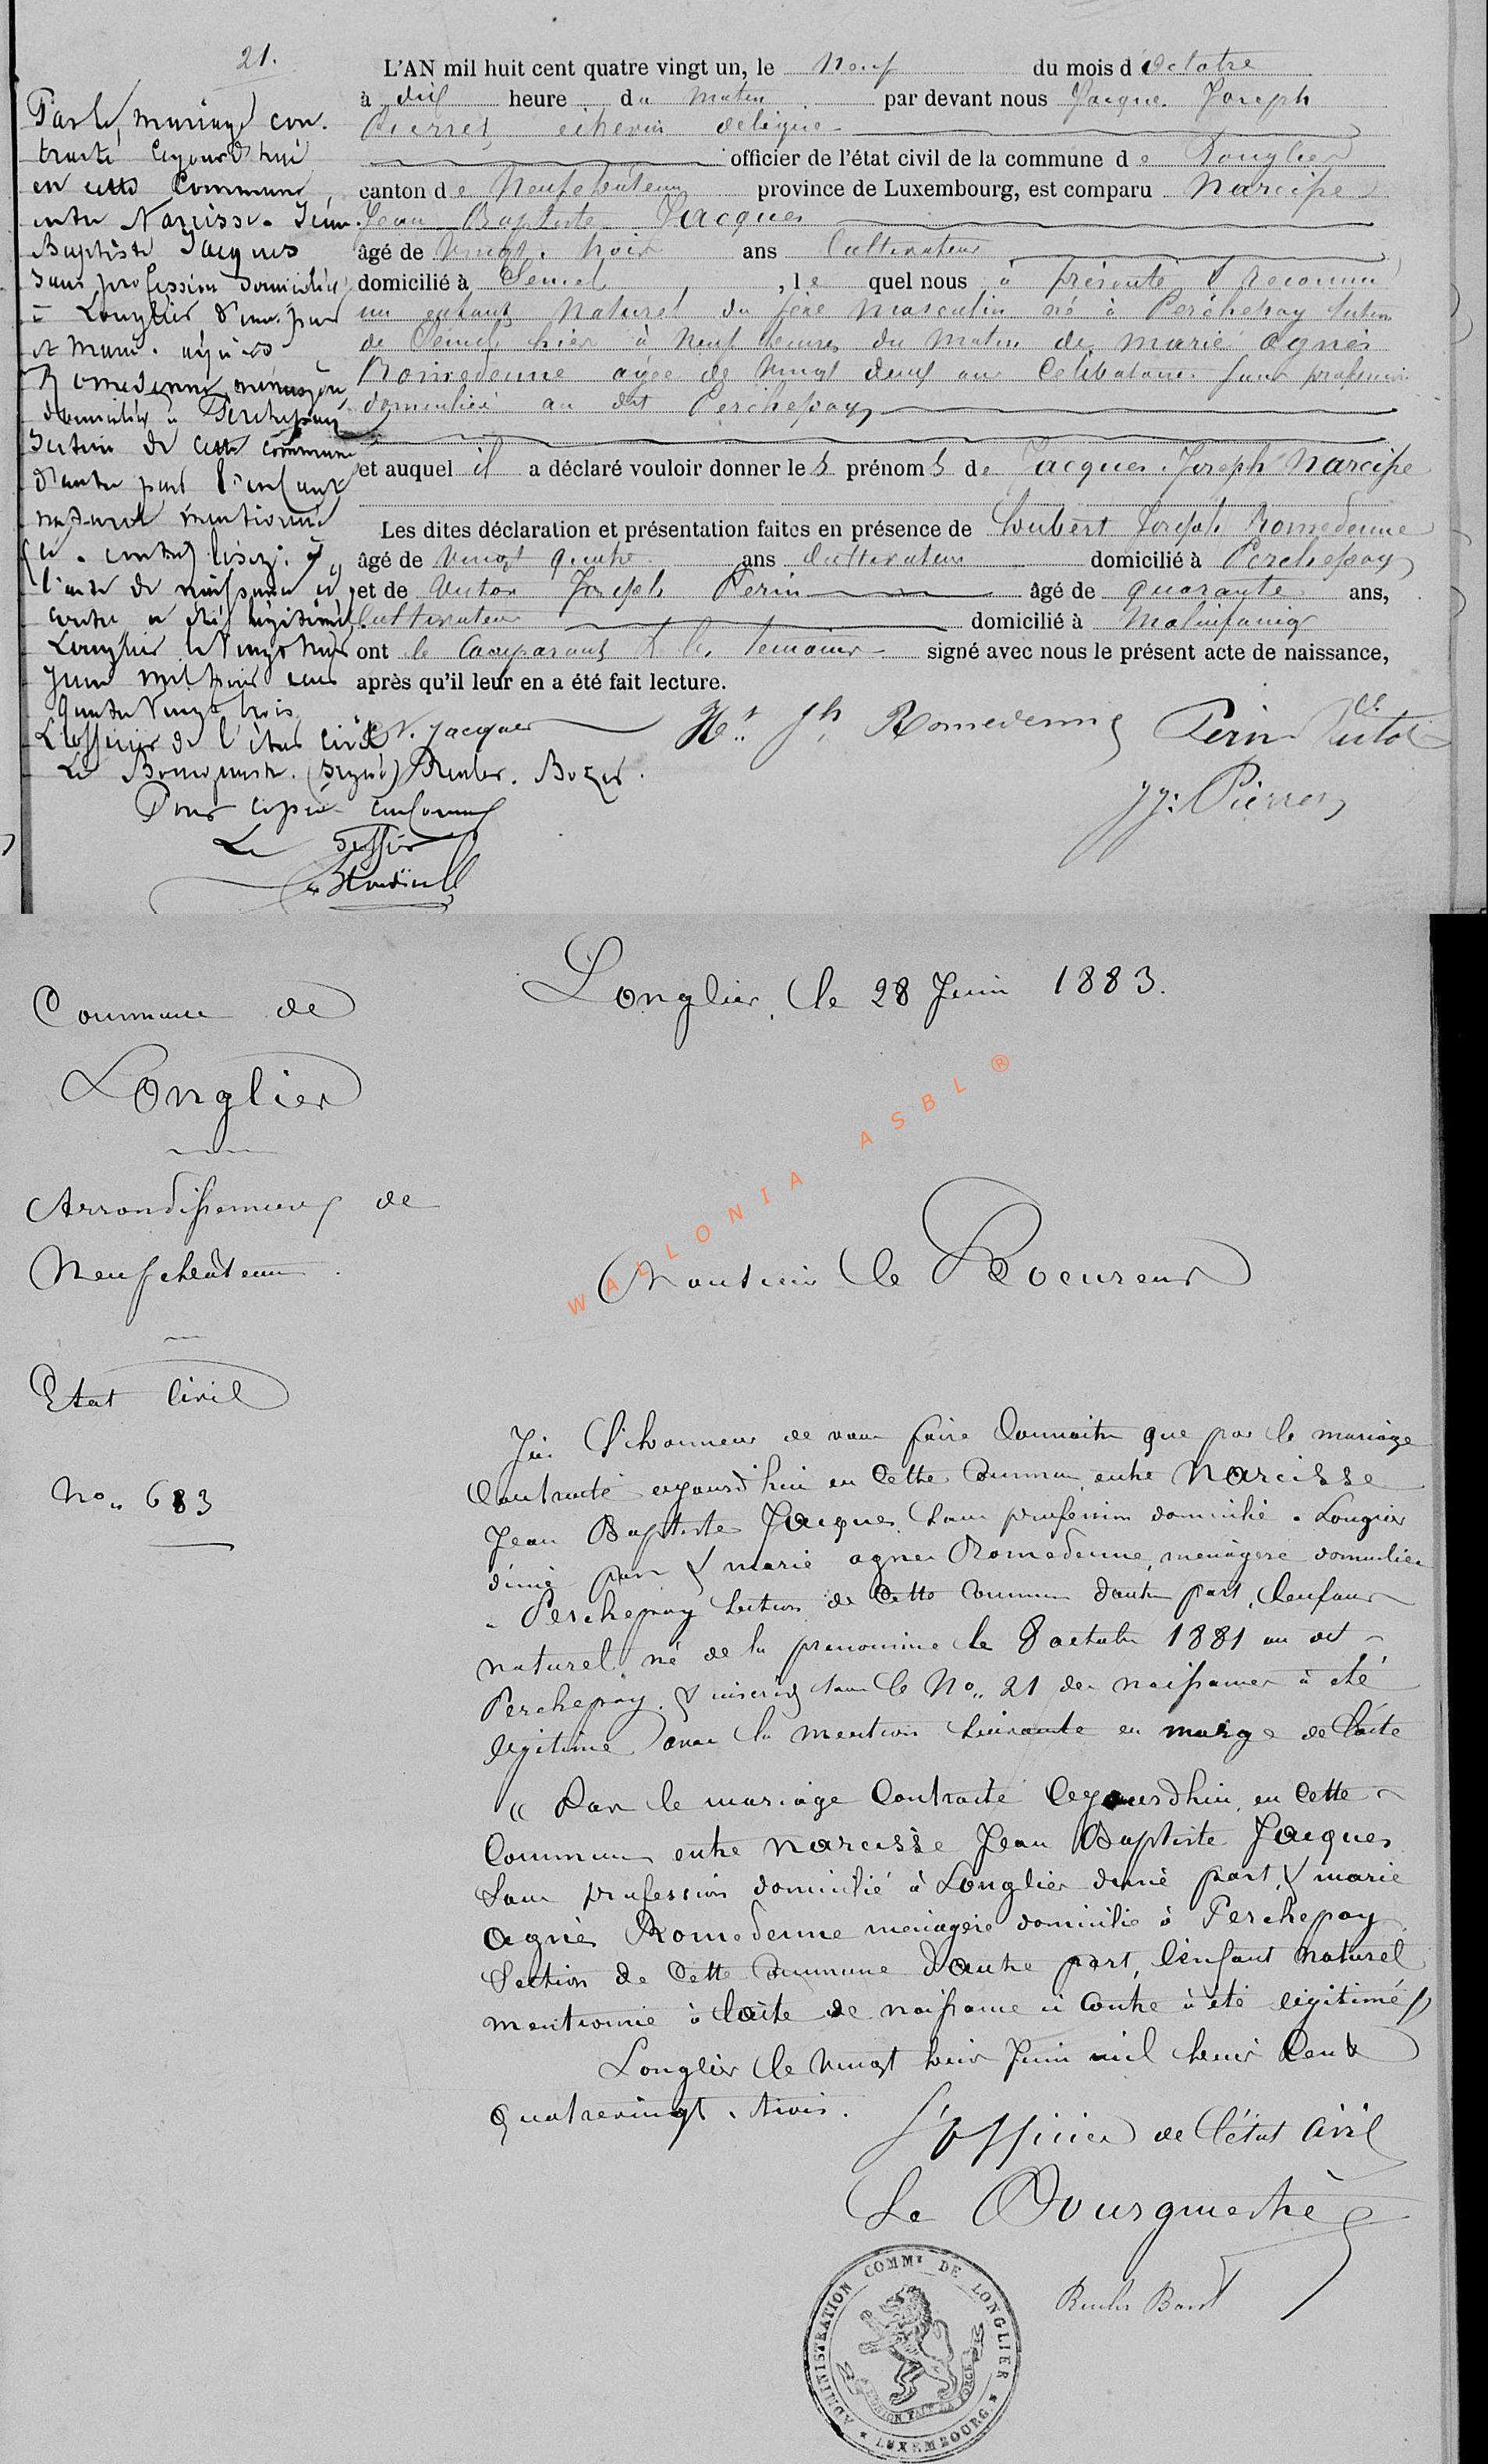 21.
L'AN mil huit cent quatre vingt un, le neuf du mois d'Octobre
à dix heure du matin par devant nous Jacques Joseph
Pierret echevin délégué
officier de l'état civil de la commune de Longlier
canton de Neufchâteau province de Luxembourg, est comparu Narcisse
Jean Baptiste Jacques
âgé de vingt trois ans Cultivateur
domicilié à Semel, lequel nous a présenté & reconnu
un enfant naturel du sexe masculin né à Perchepay section
de Semel hier à neuf heures du matin de marie agnès
Romedenne agée de vingt deux ans Célibataire sans profession
domiciliée au dit Perchepay
et auquel il a déclaré vouloir donner les prénoms de Jacques Joseph Narcisse
Les dites déclaration et présentation faites en présence de Hubert Joseph Romedenne
âgé de vingt quatre ans Cultivateur domicilié à Perchepay
et de Victor Joseph Perin âgé de quarante ans,
Cultivateur domicilié à Molinfaing
ont le Comparant & les temoins signé avec nous le présent acte de naissance,
après qu'il leur en a été fait lecture.
N. Jacques Ht. Jh. Romedenne Perin Victor
JJ: Pierret
Par le mariage con-
tracté cejourd'hui
en cette Commune
entre Narcisse Jean
Baptiste Jacques
sans profession domicilié
à Longlier d'une part
et Marie agnès
Romedenne ménagère
domiciliée à Perchepay
section de cette commune
d'autre part l'enfant
naturel mentionné
l'acte de naissance ci
contre a été légitimé
Longlier le vingt huit
Juin mil huit cent
quatre vingt trois
L'officier de l'état civil
Le Bourgmestre. (signé)
Pour copie conforme
Le Greffier
Commune de
Longlier
Arrondissement de
Neufchâteau.
Etat Civil
No. 683
Longlier, le 28 Juin 1883.
WALLONIA ASBL ®
Monsieur le Procureur
J'ai l'honneur de vous faire Connaitre que par le mariage
Contracté cejourd'hui en Cette Commune entre Narcisse
Jean Baptiste Jacques sans profession domicilié à Longlier
d'une part & marie agnès Romedenne, menagère domiciliée
à Perchepay section de Cette Commune d'autre part, l'enfant
naturel né de la prenommée le 8 octobre 1881 au dit
Perchepay & inscrit sous le No. 21 des naissances à été
legitimé avec la mention suivante en marge de l'acte
" Par le mariage Contracté Cejourd'hui, en Cette
Commune entre Narcisse Jean Baptiste Jacques
sans profession domicilié à Longlier d'une part, & marie
agnès Romedenne menagère domicilié à Perchepay
Section de Cette Commune d'autre part, l'enfant naturel
mentionné à l'acte de naissance ci Contre à été légitimé "
Longlier le vingt huit Juin mil huit Cent
Quatrevingt trois.
L'officier de l'état Civil
Le Bourgmestre
ADMINISTRATION COMMle DE LONGLIER
L'UNION FAIT LA FORCE
* LUXEMBOURG *